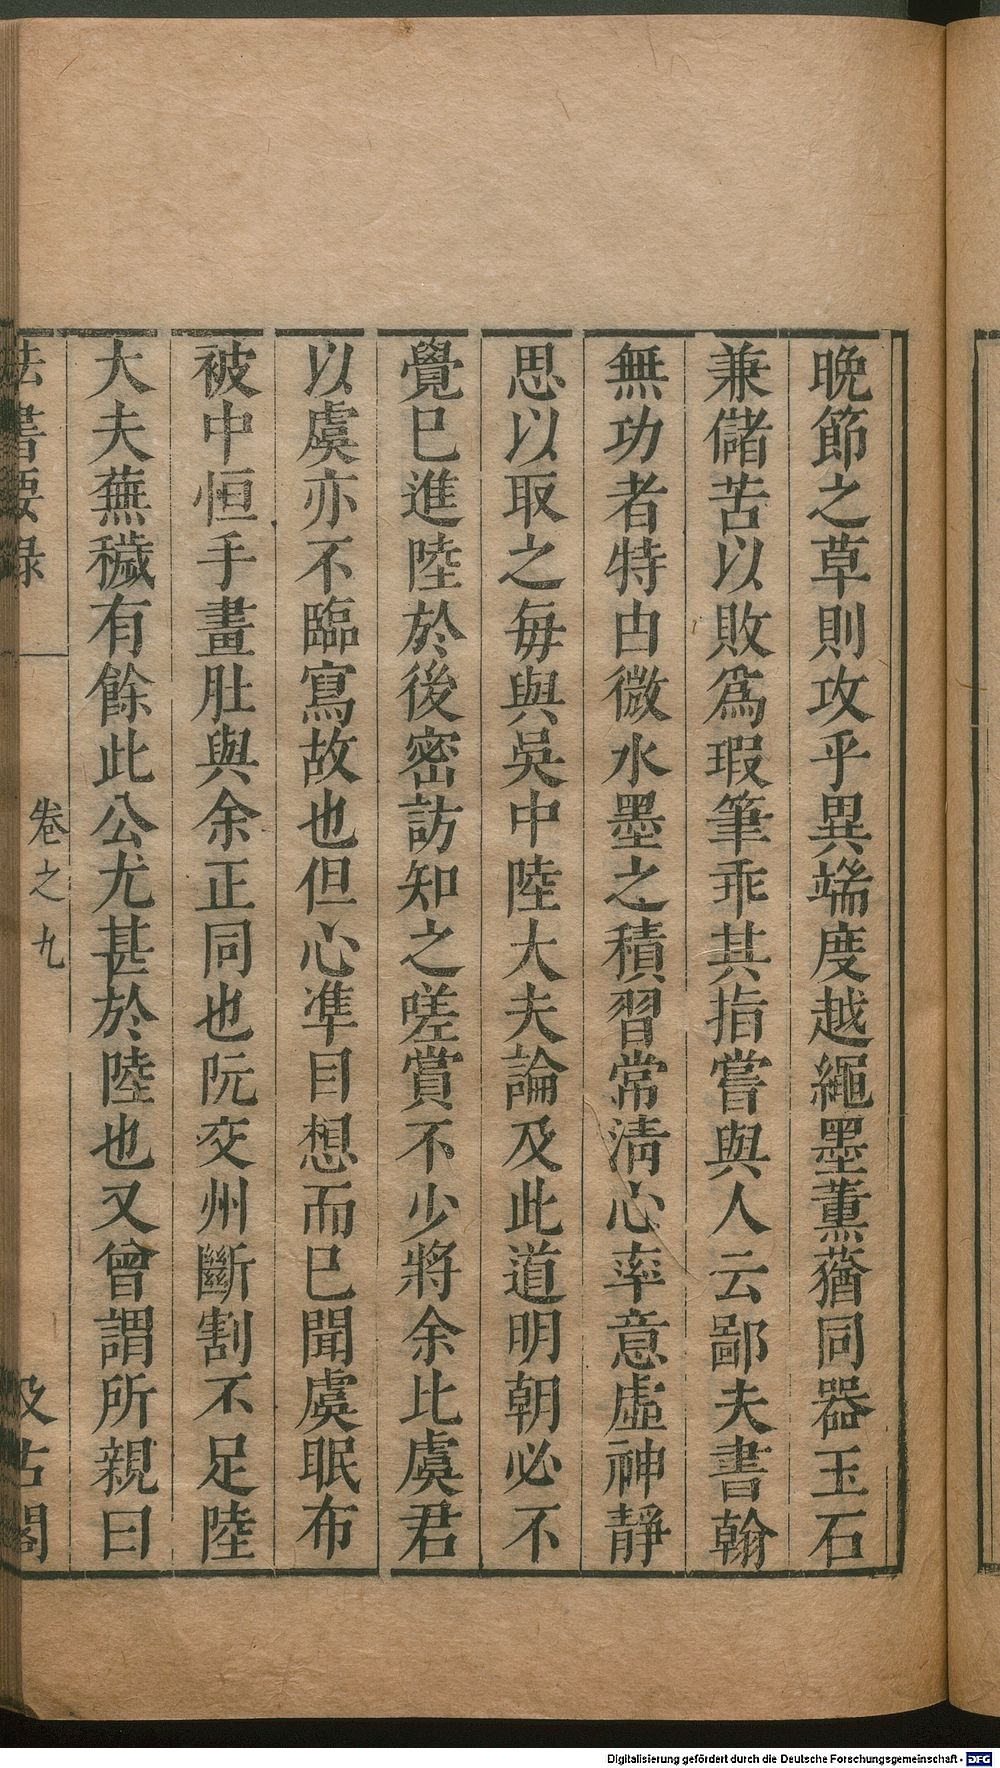 晚節之草則攻乎異端度越繩墨薰蕕同器玉石
兼儲苦以敗爲瑕筆乖其指嘗與人云鄙夫書翰
無功者特由微水墨之積習常清心率意虛神靜
思以取之每與吳中陸大夫論及此道明朝必不
覺已進陸於後密訪知之嗟賞不少將余比虞君
以虞亦不臨寫故也但心準目想而已聞虞眠布
被中恒手畫肚與余正同也阮交州斷割不足陸
大夫蕪穢有餘此公尤甚於陸也又曾謂所親曰
法書要錄 卷之九 汲古閣
Digitalisierung gefördert durch die Deutsche Forschungsgemeinschaft - DFG